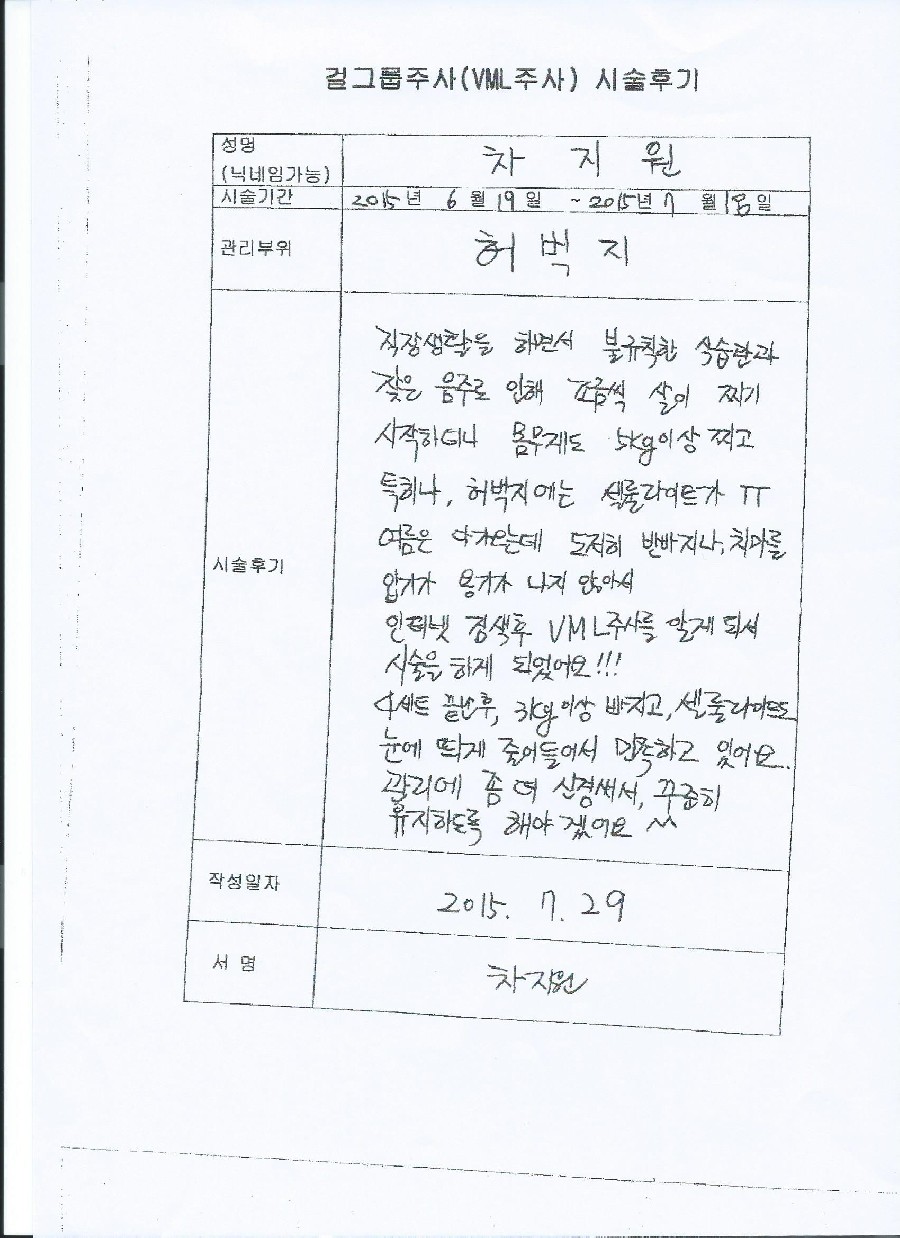 걸그룹주사(VML주사) 시술후기
성명
(닉네임가능)
차 지 원
시술기간
2015년 6월 19일 ~ 2015년 7월 18일
관리부위
허 벅 지
시술후기
직장생활을 하면서 불규칙한 식습관과
잦은 음주로 인해 조금씩 살이 찌기
시작하더니 몸무게도 5kg이상 찌고
특히나, 허벅지에는 셀룰라이트가 ㅠ
여름은 다가오는데 도저히 반바지나, 치마를
입기가 용기가 나지 않아서
인터넷 검색후 VML주사를 알게 되서
시술을 하게 되었어요!!!
4세트 끝난후, 3kg이상 빠지고, 셀룰라이트도
눈에 띄게 줄어들어서 만족하고 있어요.
관리에 좀 더 신경써서, 꾸준히
유지하도록 해야겠어요 ^^
작성일자
2015. 7. 29
서 명
차지원